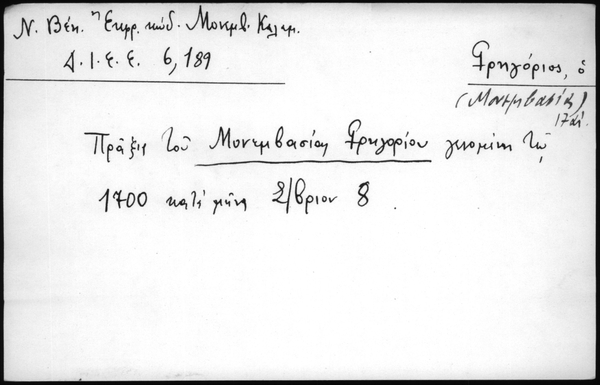 Ν. Βέη. Ἡ Ἐκφρ. κώδ. Μονεμβ. Καλαμ.
Δ. Ι. Ε. Ε. 6, 189
Γρηγόριος, ὁ
(Μονεμβασίας)
17 αἰ.
Πρᾶξις τοῦ Μονεμβασίας Γρηγορίου γενομένη τῷ
1700 κατὰ μῆνα Σ/βριον 8